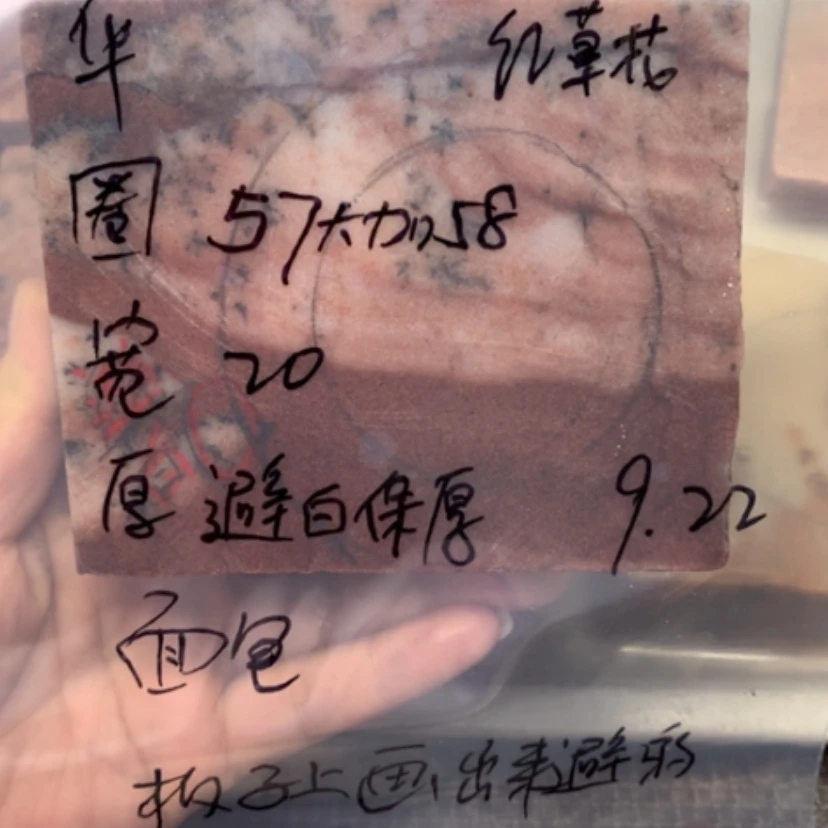 华 红草花
圈 57大加58
宽 20
厚 避白保厚 9.22
面包
板子上画出来避彩